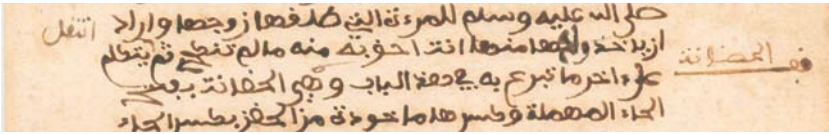 صلى الله عليه وسلم للمرءة التي طلقها زوجها واراد
ان ياخذ ولدها منها انت احق به منه ما لم تنكحي ثم
الحضانة
اخر ما تبرع به في هذا الباب وهي الحضانة بفتح
الحاء المهملة وكسرها ماخوذة من الحضن بكسر الحاء